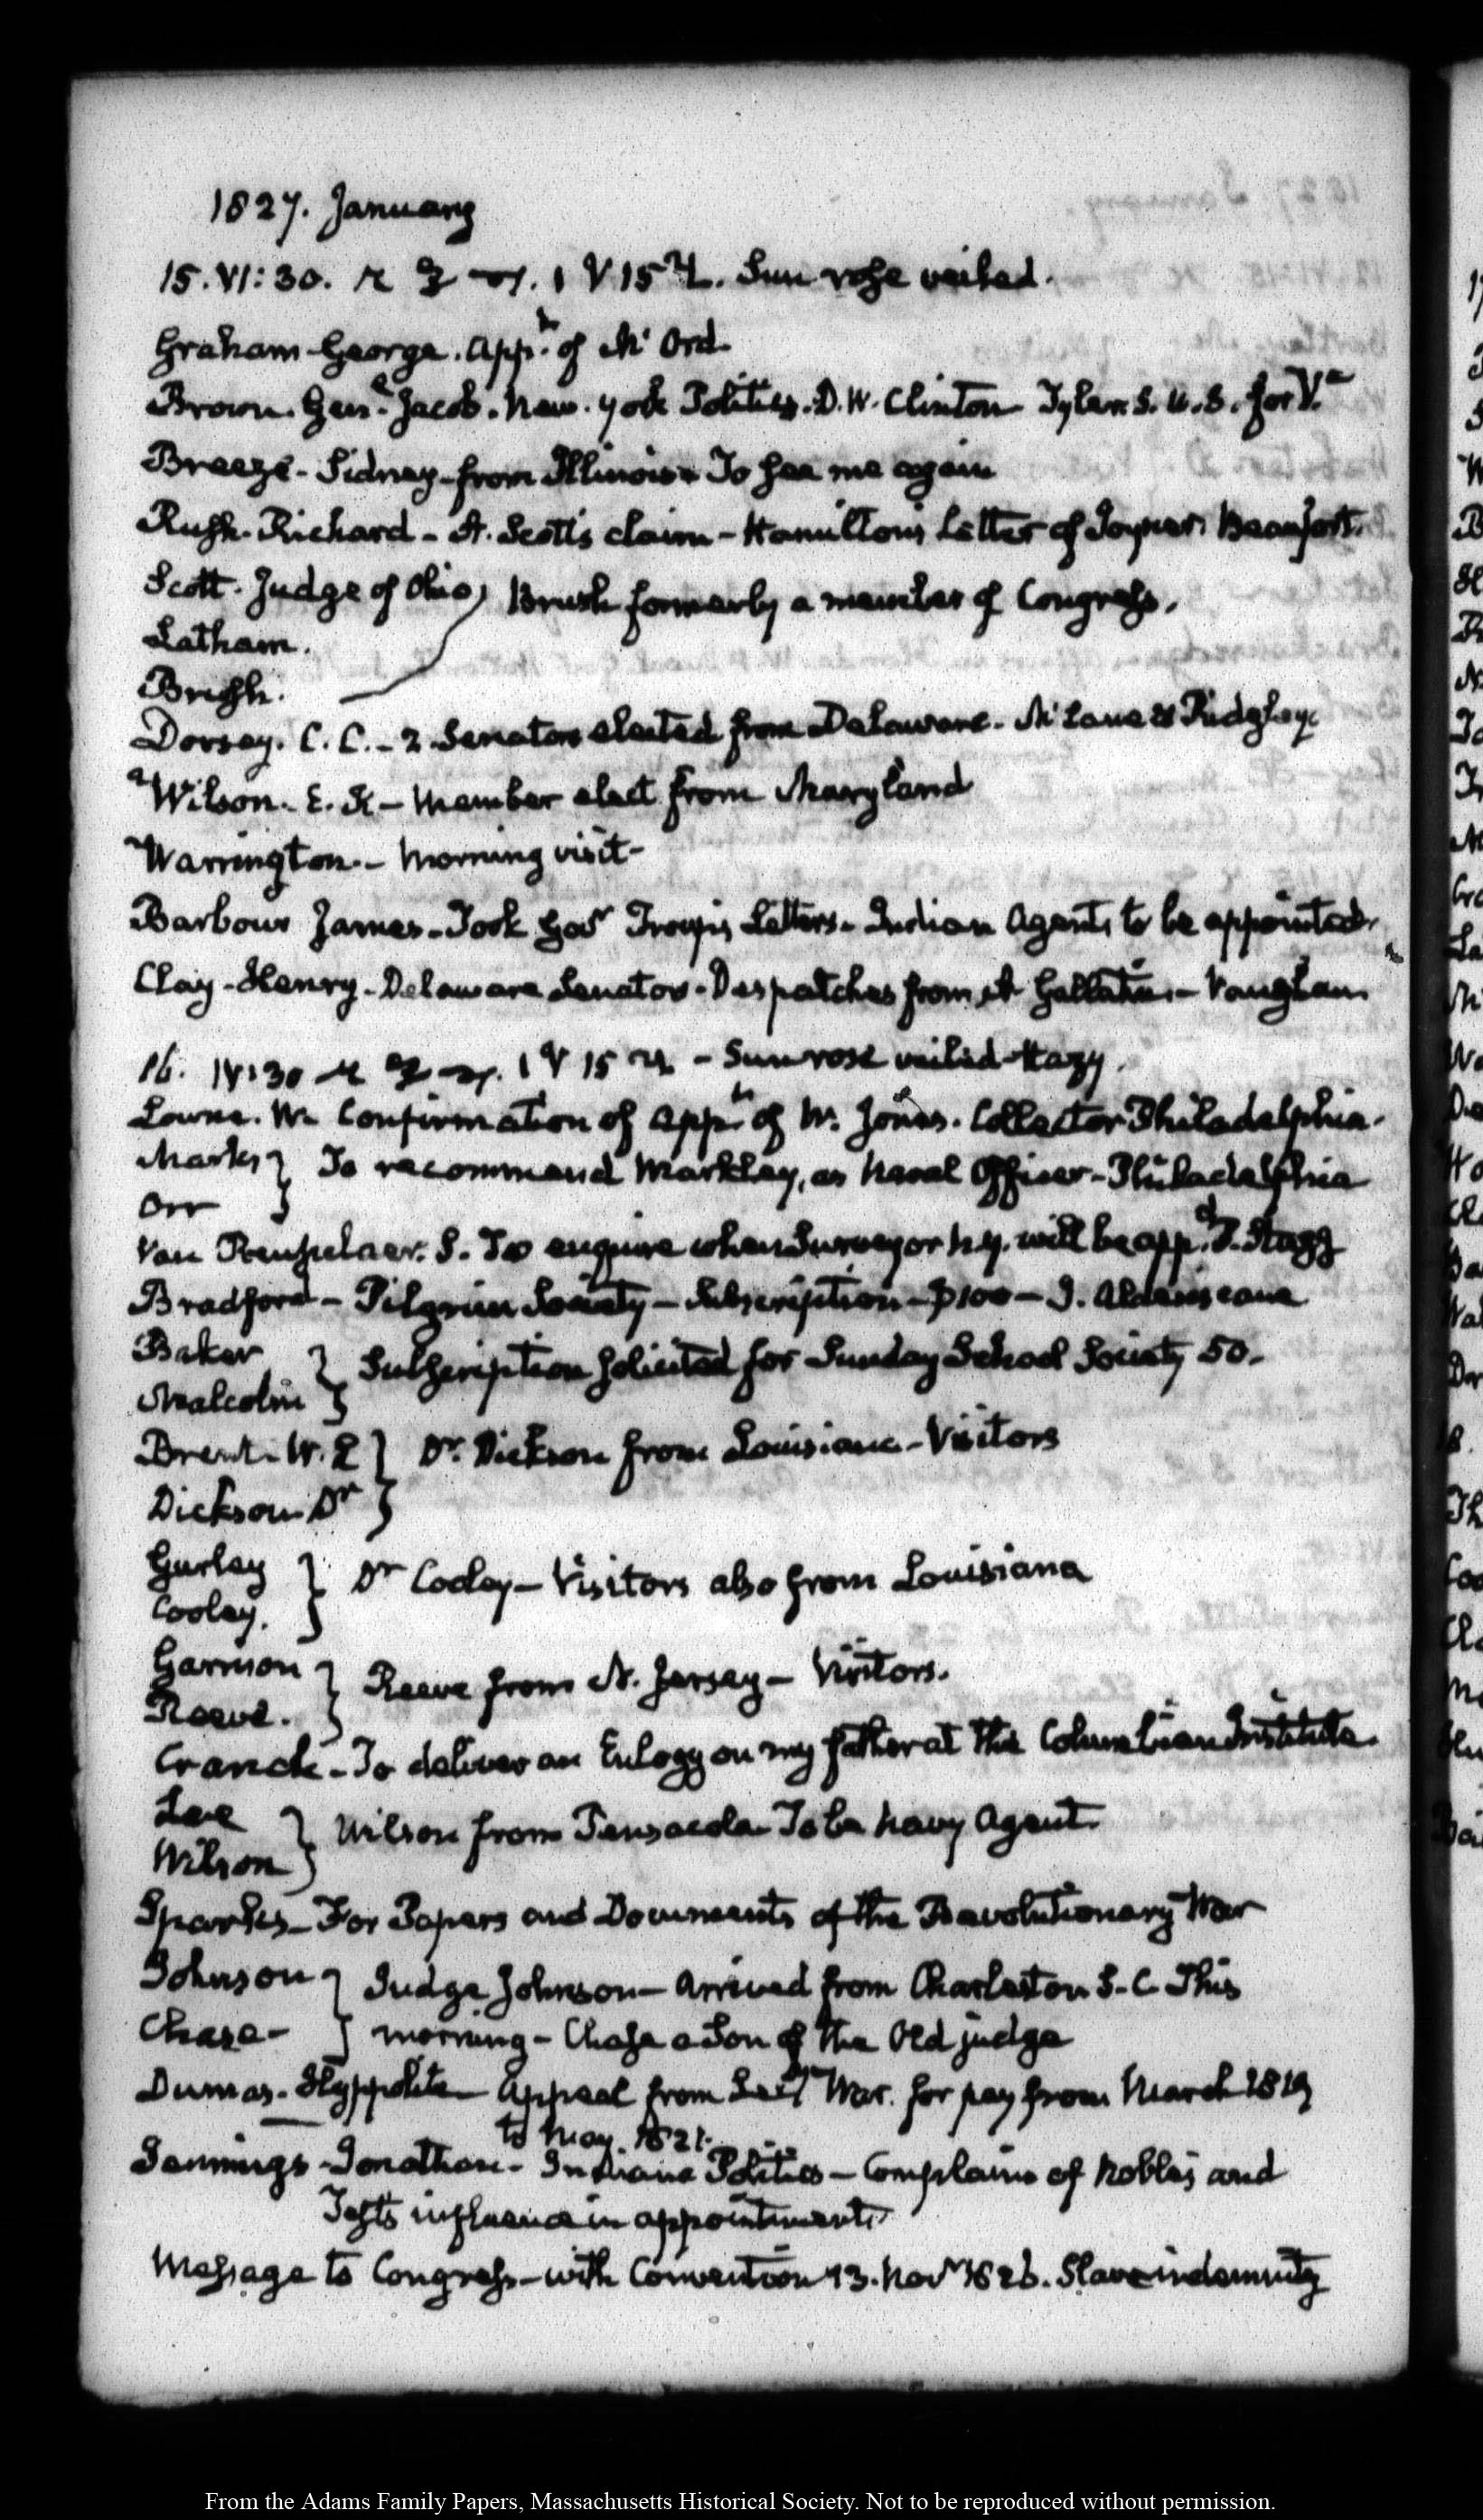 1827. January
15. VI:30. Sun rose veiled.
Graham-George. Appt. of Mc Ord.
Brown. Genl. Jacob. New-York Politics. D. W. Clinton Tyler S. U. S. for Va
Breeze - Sidney - from Illinois - To see me again
Rush. Richard - A. Scott's claim - Hamilton's Letter of Joyner Beaufort.
Scott. Judge of Ohio, Brush formerly a member of Congress.
Latham.
Brush.
Dorsey. C. C. - 2 Senators elected from Delaware. McLane & Ridgley
Wilson. E. K - Member elect from Maryland
Warrington - Morning visit -
Barbour James - Took Govr Troup's Letters - Indian Agents to be appointed.
Clay - Henry - Delaware Senator - Despatches from A Gallatin - Vaughan
16. IV:30 - Sun rose veiled - Hazy.
Lowrie. W. Confirmation of appt of W. Jones. Collector Philadelphia.
Marks } To recommend Markley, as Naval Officer - Philadelphia
Orr }
Van Rensselaer. S. To enquire when Surveyor N.Y. will be appd. Stagg
Bradford - Pilgrim Society - Subscription - $100 -
Baker } Subscription solicited for Sunday School Society 50.
Malcolm }
Brent. W. L } Dr. Dickson from Louisiana - Visitors
Dickson Dr }
Gurley } Dr Cooley - Visitors also from Louisiana
Cooley. }
Garnson } Reeve from N. Jersey - Visitors.
Reeve. }
Cranch - To deliver an Eulogy on my father at the Columbian Institute.
Lee } Wilson from Pensacola To be Navy Agent
Wilson }
Sparks - For Papers and Documents of the Revolutionary War
Johnson } Judge Johnson - Arrived from Charleston S. C. This
Chase - } morning - Chase a Son of the Old judge
Dumas. Hyppolite Appeal from Secy War. for pay from March 1819
to May. 1821.
Jennings - Jonathan - Indiana Politics - Complains of Noble's and
Test's influence in appointments
Message to Congress - with Convention 13. Novr 1826. Slave indemnity
From the Adams Family Papers, Massachusetts Historical Society. Not to be reproduced without permission.